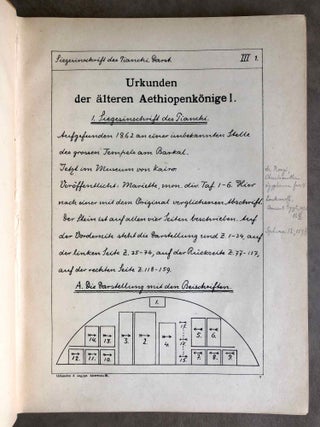 Siegesinschrift des Pianchi Barst III 1.
Urkunden
der älteren Aethiopenkönige I.
1. Siegesinschrift des Pianchi.
Aufgefunden 1862 an einer unbekannten Stelle
des grossen Tempels am Barkal.
Jetzt im Museum von Kairo.
Veröffentlicht: Mariette, mon. div. Taf 1-6. Hier
nach einer mit dem Original verglichenen Abschrift.
Der Stein ist auf allen vier Seiten beschrieben. Auf
der Vorderseite steht die Darstellung und Z. 1-29, auf
der linken Seite Z. 35-76, auf der Rückseite Z. 77-117,
auf der rechten Seite Z. 118-159.
A. Die Darstellung mit den Beischriften.
1.
14. 13. 3. 2. 4. 17. 5. 6.
16.
12. 11. 10. 15. 7. 8. 9.